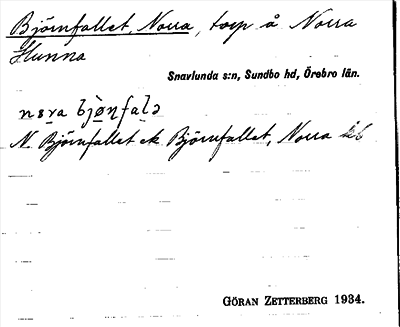 Björnfallet, Norra, torp å Norra
Hunna
Snavlunda s:n, Sundbo hd, Örebro län.
N. Björnfallet ek Björnfallet, Norra
GÖRAN ZETTERBERG 1934.